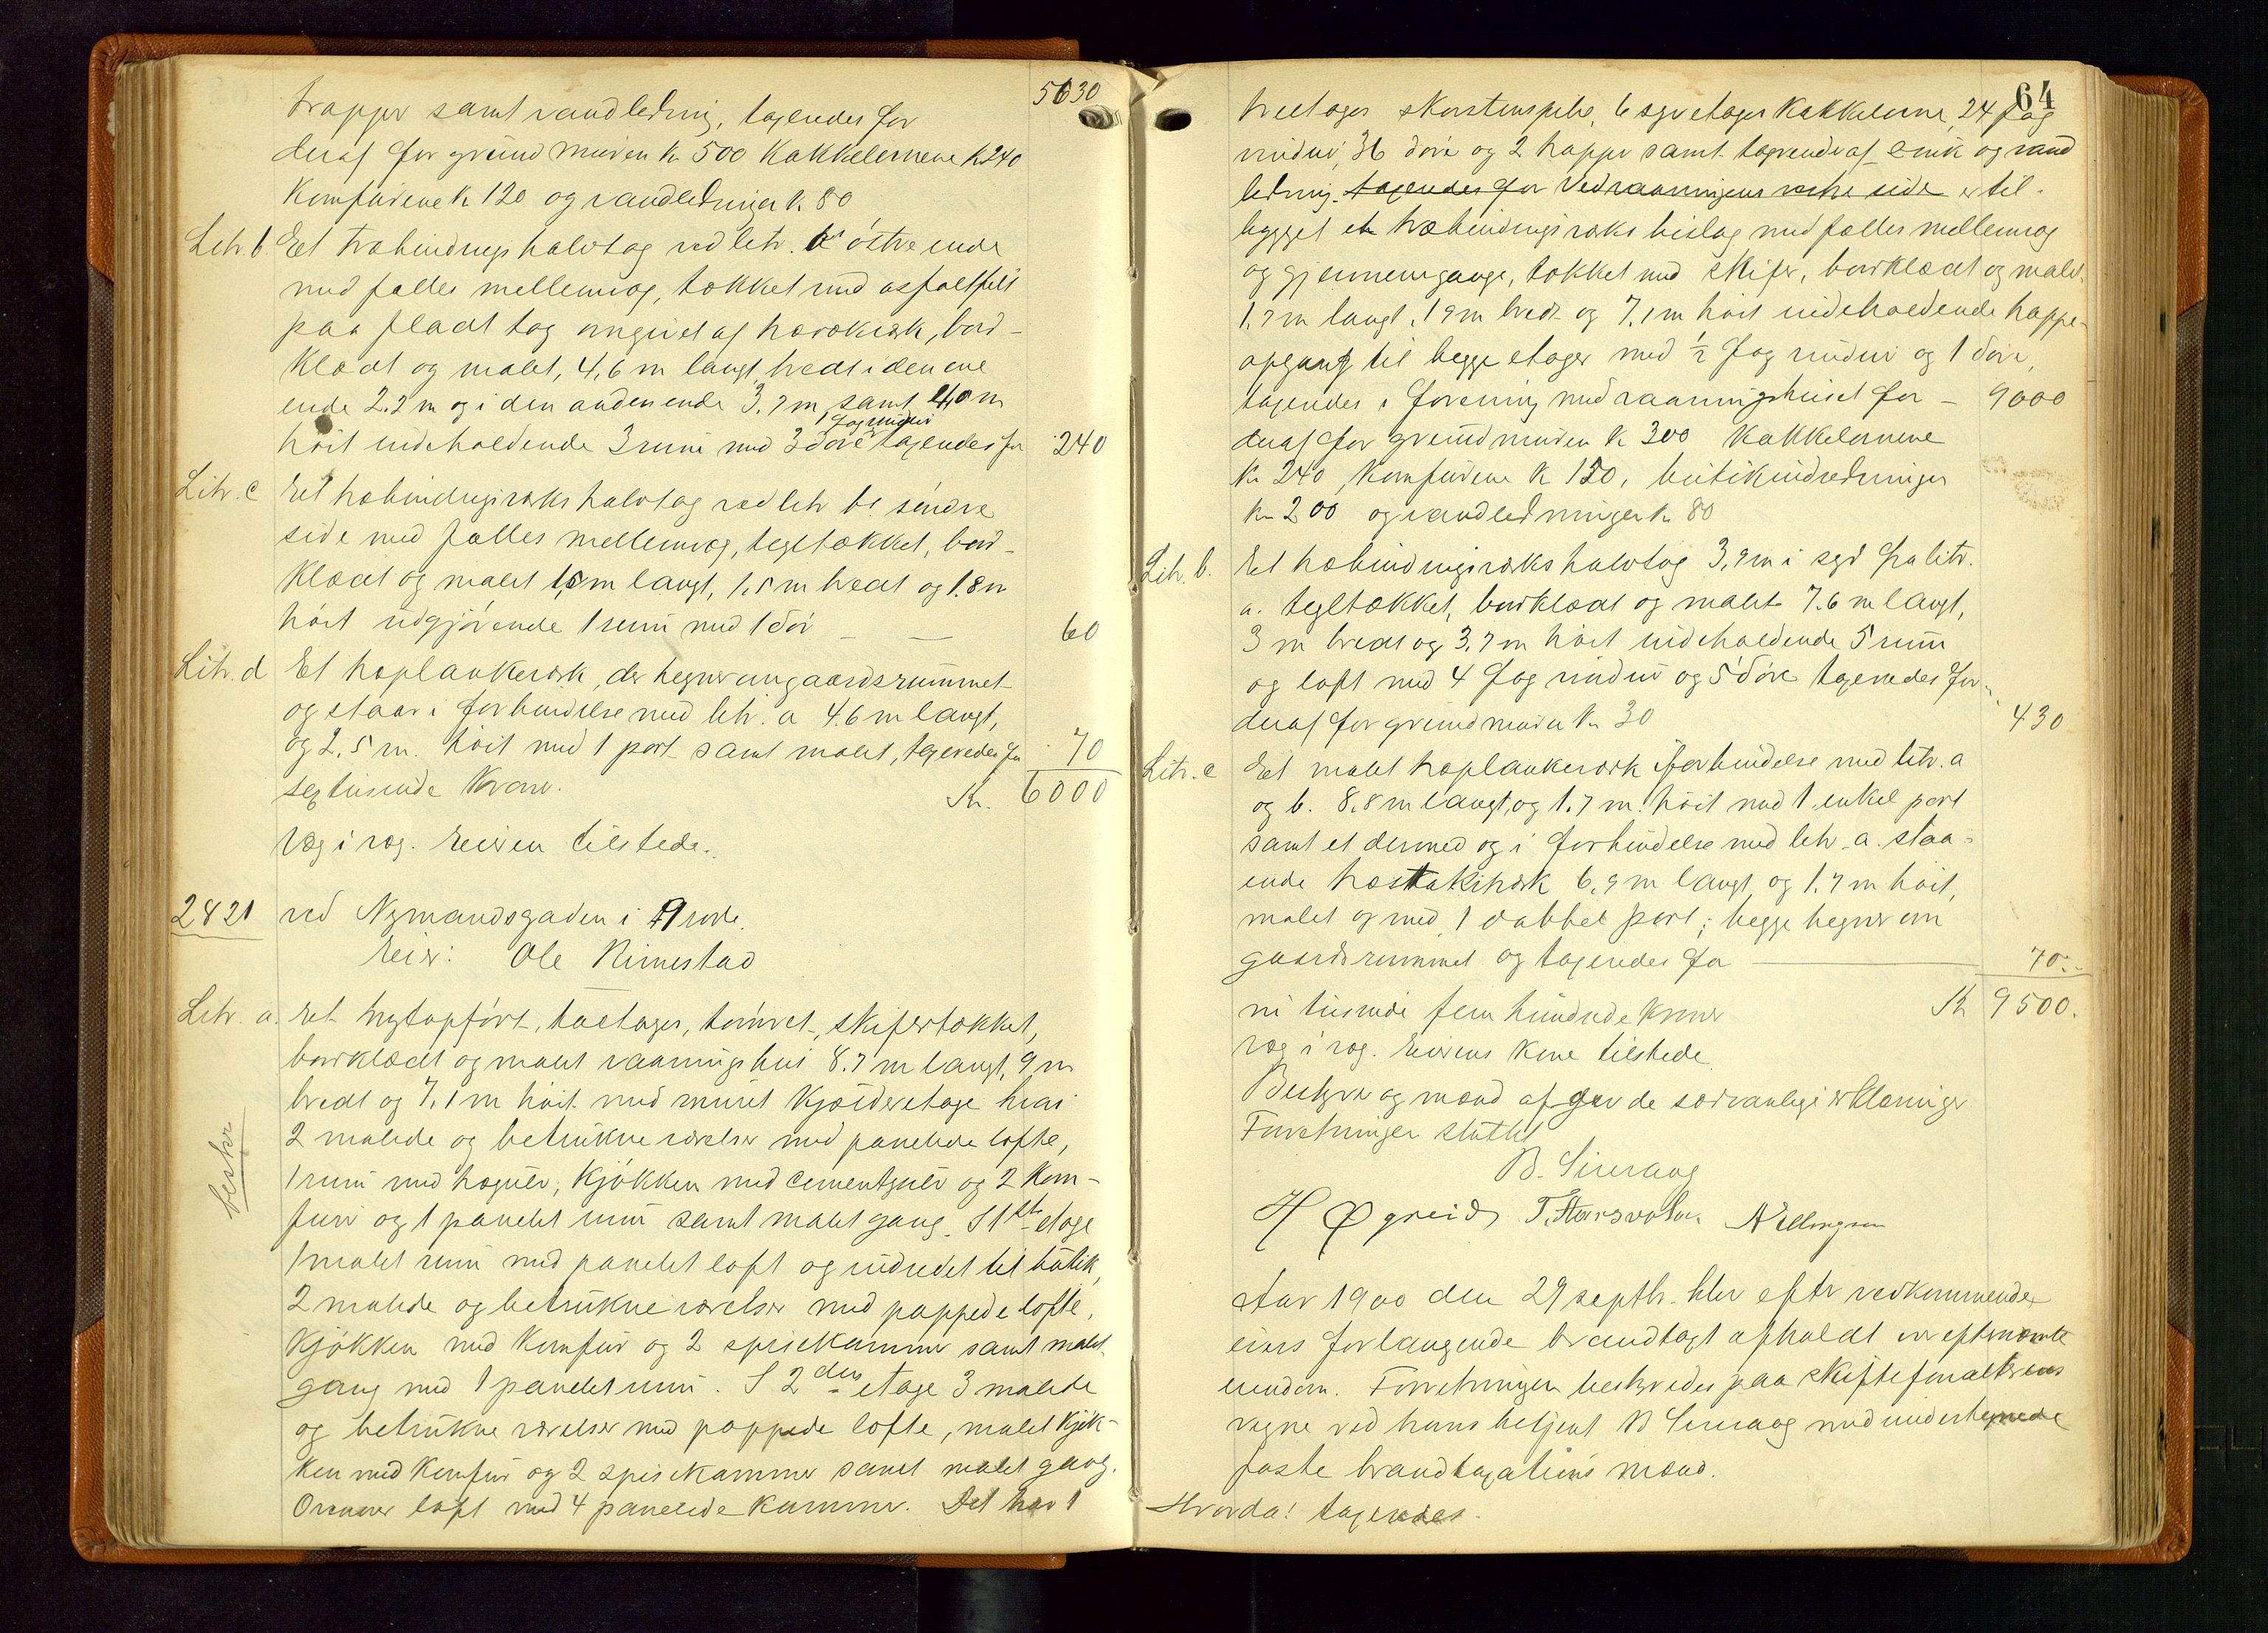 trapper samt vandledning, taxeredes for 5630
deraf for grundmuren kr 500 kakkelovnene kr 240
komfurene kr 120 og vandledningen kr. 80
Litr. b. Et træbindings halvtag ved litr. a's østre ende
med fælles mellemvæg, tækket med asfaltfilt
paa fladt tag omgivet af træværk, bord-
klædt og malet, 4,6 m langt, bredt i den ene
ende 2.2 m og i den anden ende 3.7 m samt 4,0 m
1 fag vindu
høit indeholdende 3 rum med 3 døre taxeredes for 240
Litr. c Et træbindingsværks halvtag ved litr b's søndre
side med fælles mellemvæg, tegltækket, bord-
klædt og malet 1,5 m langt, 1,5 m bredt og 1.8 m
høit udgjørende 1 rum med 1 dør — — 60
Litr. d Et træplankeværk, der hegner om gaardsrummet
og staar i forbindelse med litr. a 4.6 m langt,
og 2,5 m. høit med 1 port samt malet, taxeredes for 70
sextusinde Kroner. Kr. 6000
Væg i væg. Eieren tilstede.
2821 ved Nymandsgaden i 9 rode.
Eier: Ole Rimestad
Litr. a. Et nyt opført, toetages, tømret, skifertækket,
bordklædt og malet vaaningshus 8.7 m langt, 9 m
bredt og 7,1 m høit med muret kjælderetage hvori
2 malede og betrukne værelser med panelede lofte,
1 rum med trægulv, kjøkken med cementgulv og 2 kom-
beskr
furer og 1 panelet rum samt malet gang. I 1ste etage
1 malet rum med panelet loft og indredet til butik,
2 malede og betrukne værelser med pappede lofte,
kjøkken med komfur og 2 spisekammer samt malet
gang med 1 panelet rum. I 2den etage 3 malede
og betrukne værelser med pappede lofte, malet kjøk-
ken med komfur og 2 spisekammer samt malet gang.
Ovenover loft med 4 panelede kammer. Det har 1
64
treetages skorstenspibe, 6 syvetages kakkelovne, 24 fag
vinduer, 36 døre og 2 trapper samt tagrender af zink og vand
ledning. taxeredes for Ved vaaningens vestre side er til-
bygget et træbindingsværks bislag med fælles mellemvæg
og gjennemgange, tækket med skifer, bordklædt og malet
1.7 m langt, 1 9 m bredt og 7,1 m høit indeholdende trappe-
opgang til begge etager med ½ fag vindu og 1 dør,
taxeredes i forening med vaaningshuset for — 9000
deraf for grundmuren kr 300 kakkelovnene
kr 240, komfurene kr 150, butikindredningen
kr 200 og vandledningen kr 80
Litr. b. Et træbindingsværks halvtag 3,9 m i syd fra litr.
a. tegltækket, bordklædt og malet 7.6 m langt,
3 m bredt og 3.7 m høit indeholdende 5 rum
og loft med 4 fag vinduer og 5 døre taxeredes for
deraf for grundmuren kr 30 430
Litr. c Et malet træplankeværk i forbindelse med litr. a
og b. 8,8 m langt, og 1.7 m. høit med 1 enkel port
samt et dermed og i forbindelse med litr. a. staa-
ende træstakitværk 6,9 m langt og 1.7 m høit,
malet og med 1 dobbel port; begge hegner om
gaardsrummet og taxeredes for — 70..
ni tusinde fem hundrede kroner Kr 9500.
Væg i væg. Eierens kone tilstede
Bestyrer og mænd afgav de sædvanlige erklæringer
Forretningen sluttet
B. Sirevaag
H Øgreid, T. Haarsvolen. N Ellingsen
Aar 1900 den 29 septbr. blev efter vedkommende
eiers forlangende brandtaxt afholdt over efternævnte
eiendom. Forretningen bestyredes paa skifteforvalterens
vegne ved hans betjent B Sirevaag med undertegnede
faste brandtaxations mænd.
Hvorda! taxeredes.